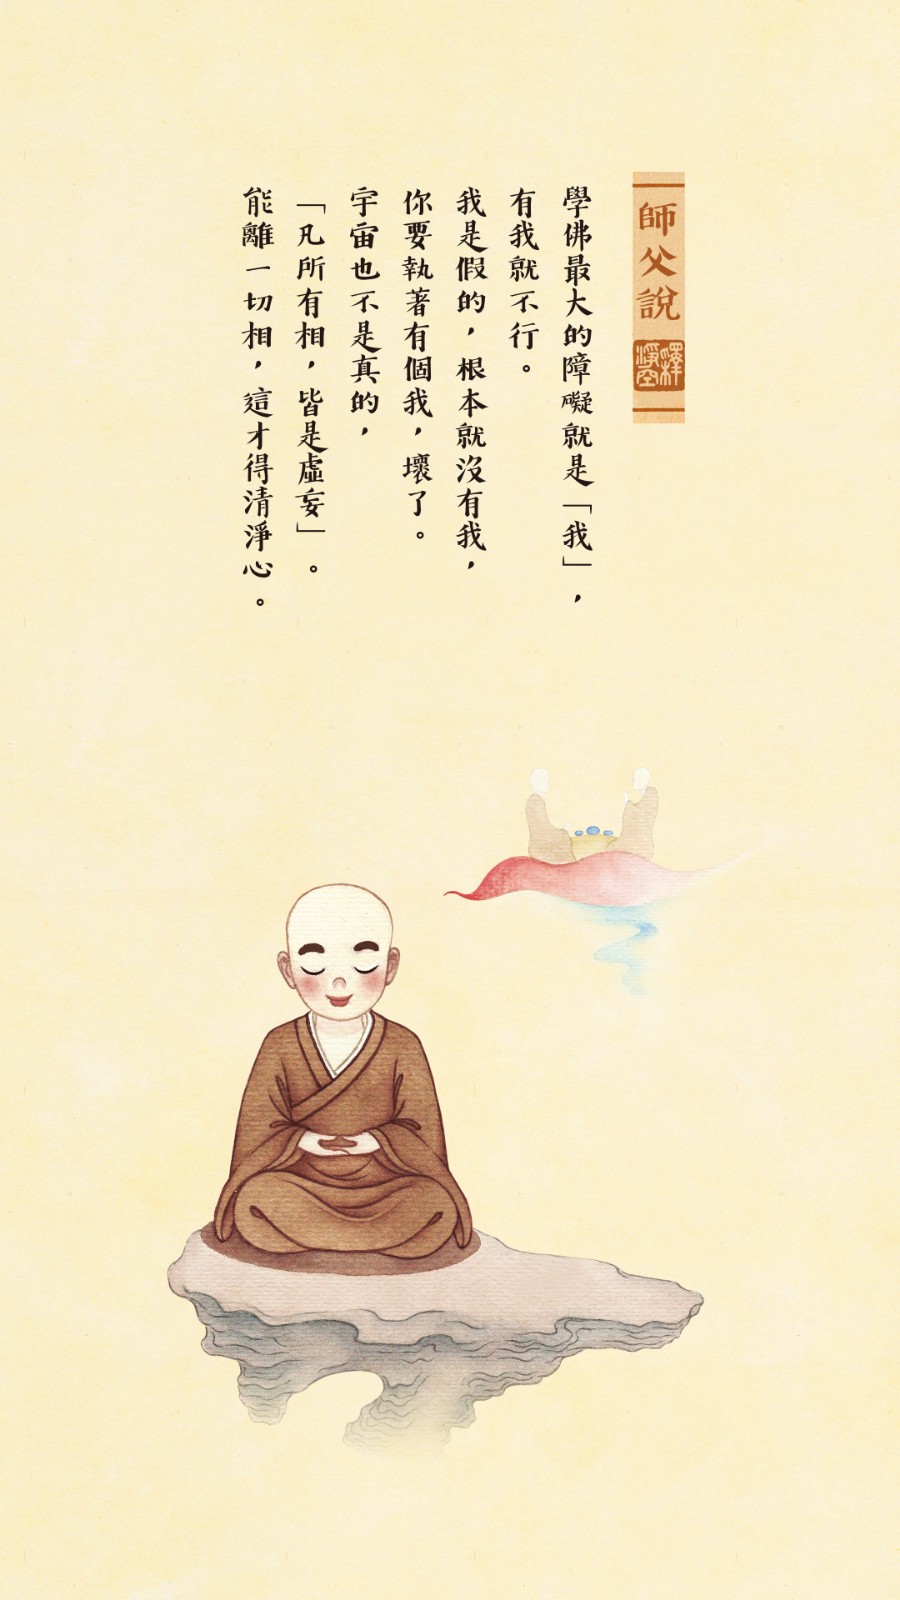 師父說
釋淨空
學佛最大的障礙就是「我」，
有我就不行。
我是假的，根本就沒有我，
你要執著有個我，壞了。
宇宙也不是真的，
「凡所有相，皆是虛妄」。
能離一切相，這才得清淨心。